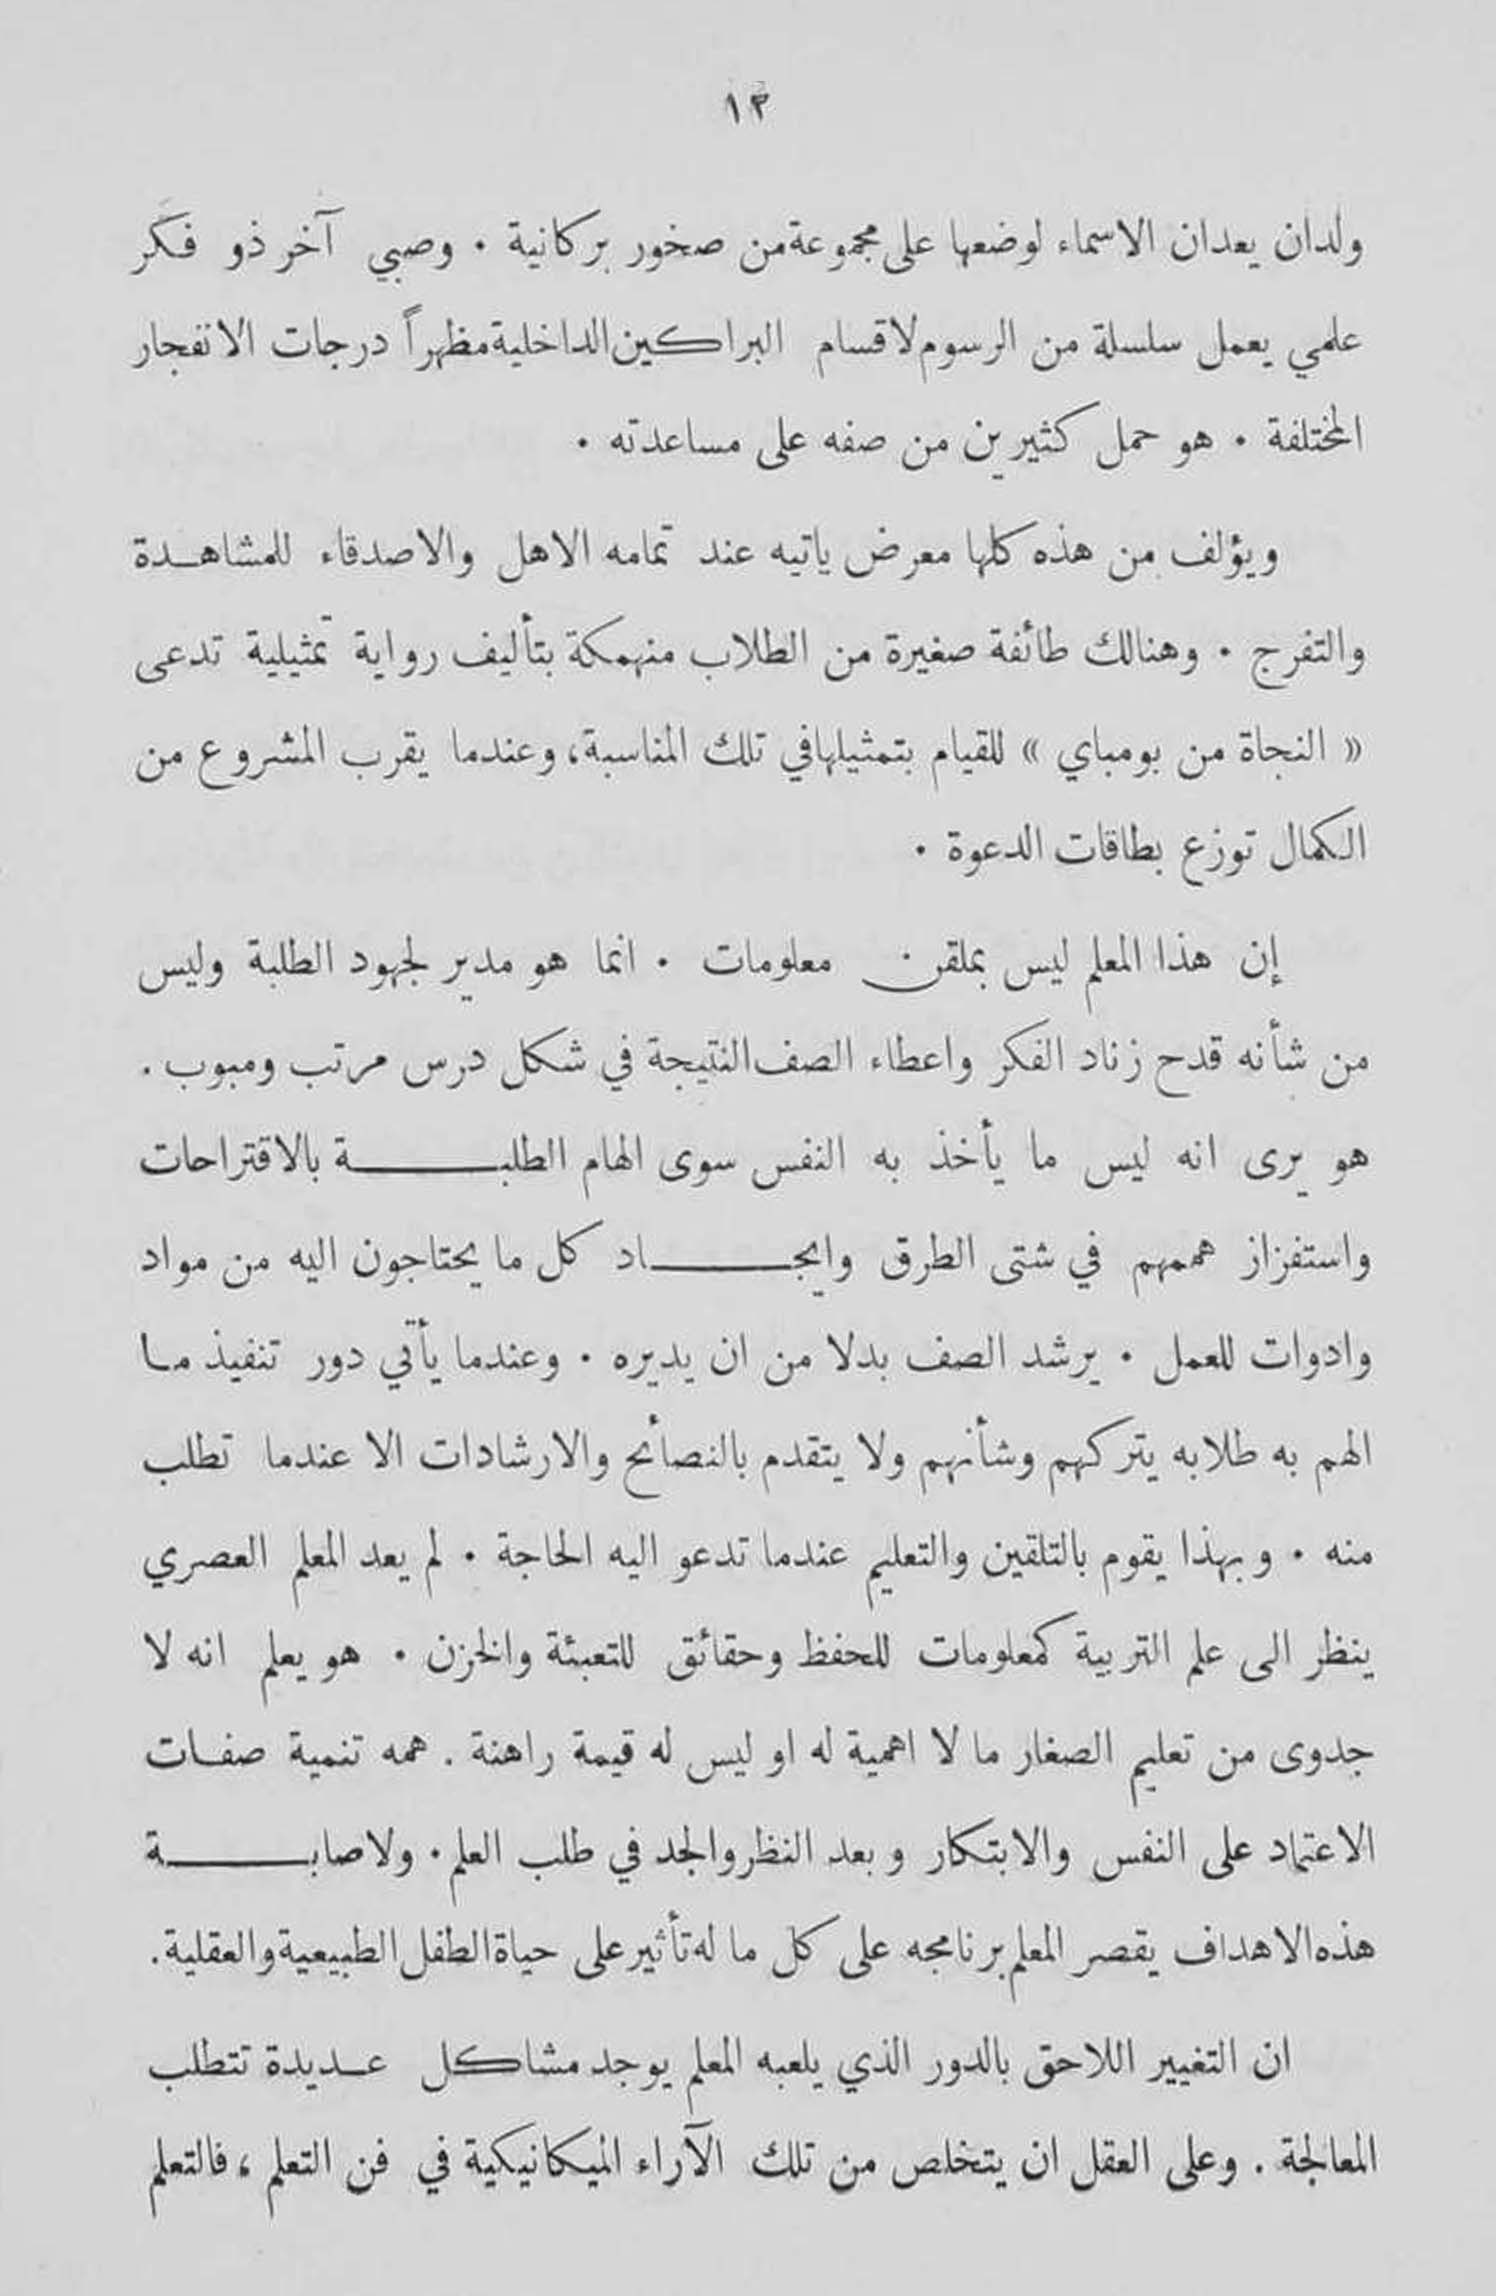 ١٣
ولدان يعدان الاسماء لوضعها على مجموعة من صخور بركانية . وصبي آخر ذو فكر
علمي يعمل سلسلة من الرسوم لاقسام البراكين الداخلية مظهراً درجات الانفجار
المختلفة . هو حمل كثيرين من صفه على مساعدته .
ويؤلف من هذه كلها معرض ياتيه عند تمامه الاهل والاصدقاء للمشاهدة
والتفرج . وهنالك طائفة صغيرة من الطلاب منهمكة بتأليف رواية تمثيلية تدعى
« النجاة من بومباي » للقيام بتمثيلها في تلك المناسبة، وعندما يقرب المشروع من
الكمال توزع بطاقات الدعوة .
إن هذا المعلم ليس بملقن معلومات . انما هو مدير لجهود الطلبة وليس
من شأنه قدح زناد الفكر واعطاء الصف النتيجة في شكل درس مرتب ومبوب .
هو يرى انه ليس ما يأخذ به النفس سوى الهام الطلبة بالاقتراحات
واستفزاز هممهم في شتى الطرق وايجاد كل ما يحتاجون اليه من مواد
وادوات للعمل . يرشد الصف بدلا من ان يديره . وعندما يأتي دور تنفيذ ما
الهم به طلابه يتركهم وشأنهم ولا يتقدم بالنصائح والارشادات الا عندما تطلب
منه . وبهذا يقوم بالتلقين والتعليم عندما تدعو اليه الحاجة . لم يعد المعلم العصري
ينظر الى علم التربية كمعلومات للحفظ وحقائق للتعبئة والخزن . هو يعلم انه لا
جدوى من تعليم الصغار ما لا اهمية له او ليس له قيمة راهنة . همه تنمية صفات
الاعتماد على النفس والابتكار وبعد النظر والجد في طلب العلم . ولاصابة
هذه الاهداف يقصر المعلم برنامجه على كل ما له تأثير على حياة الطفل الطبيعية والعقلية .
ان التغيير اللاحق بالدور الذي يلعبه المعلم يوجد مشاكل عديدة تتطلب
المعالجة . وعلى العقل ان يتخلص من تلك الآراء الميكانيكية في فن التعلم ، فالتعلم